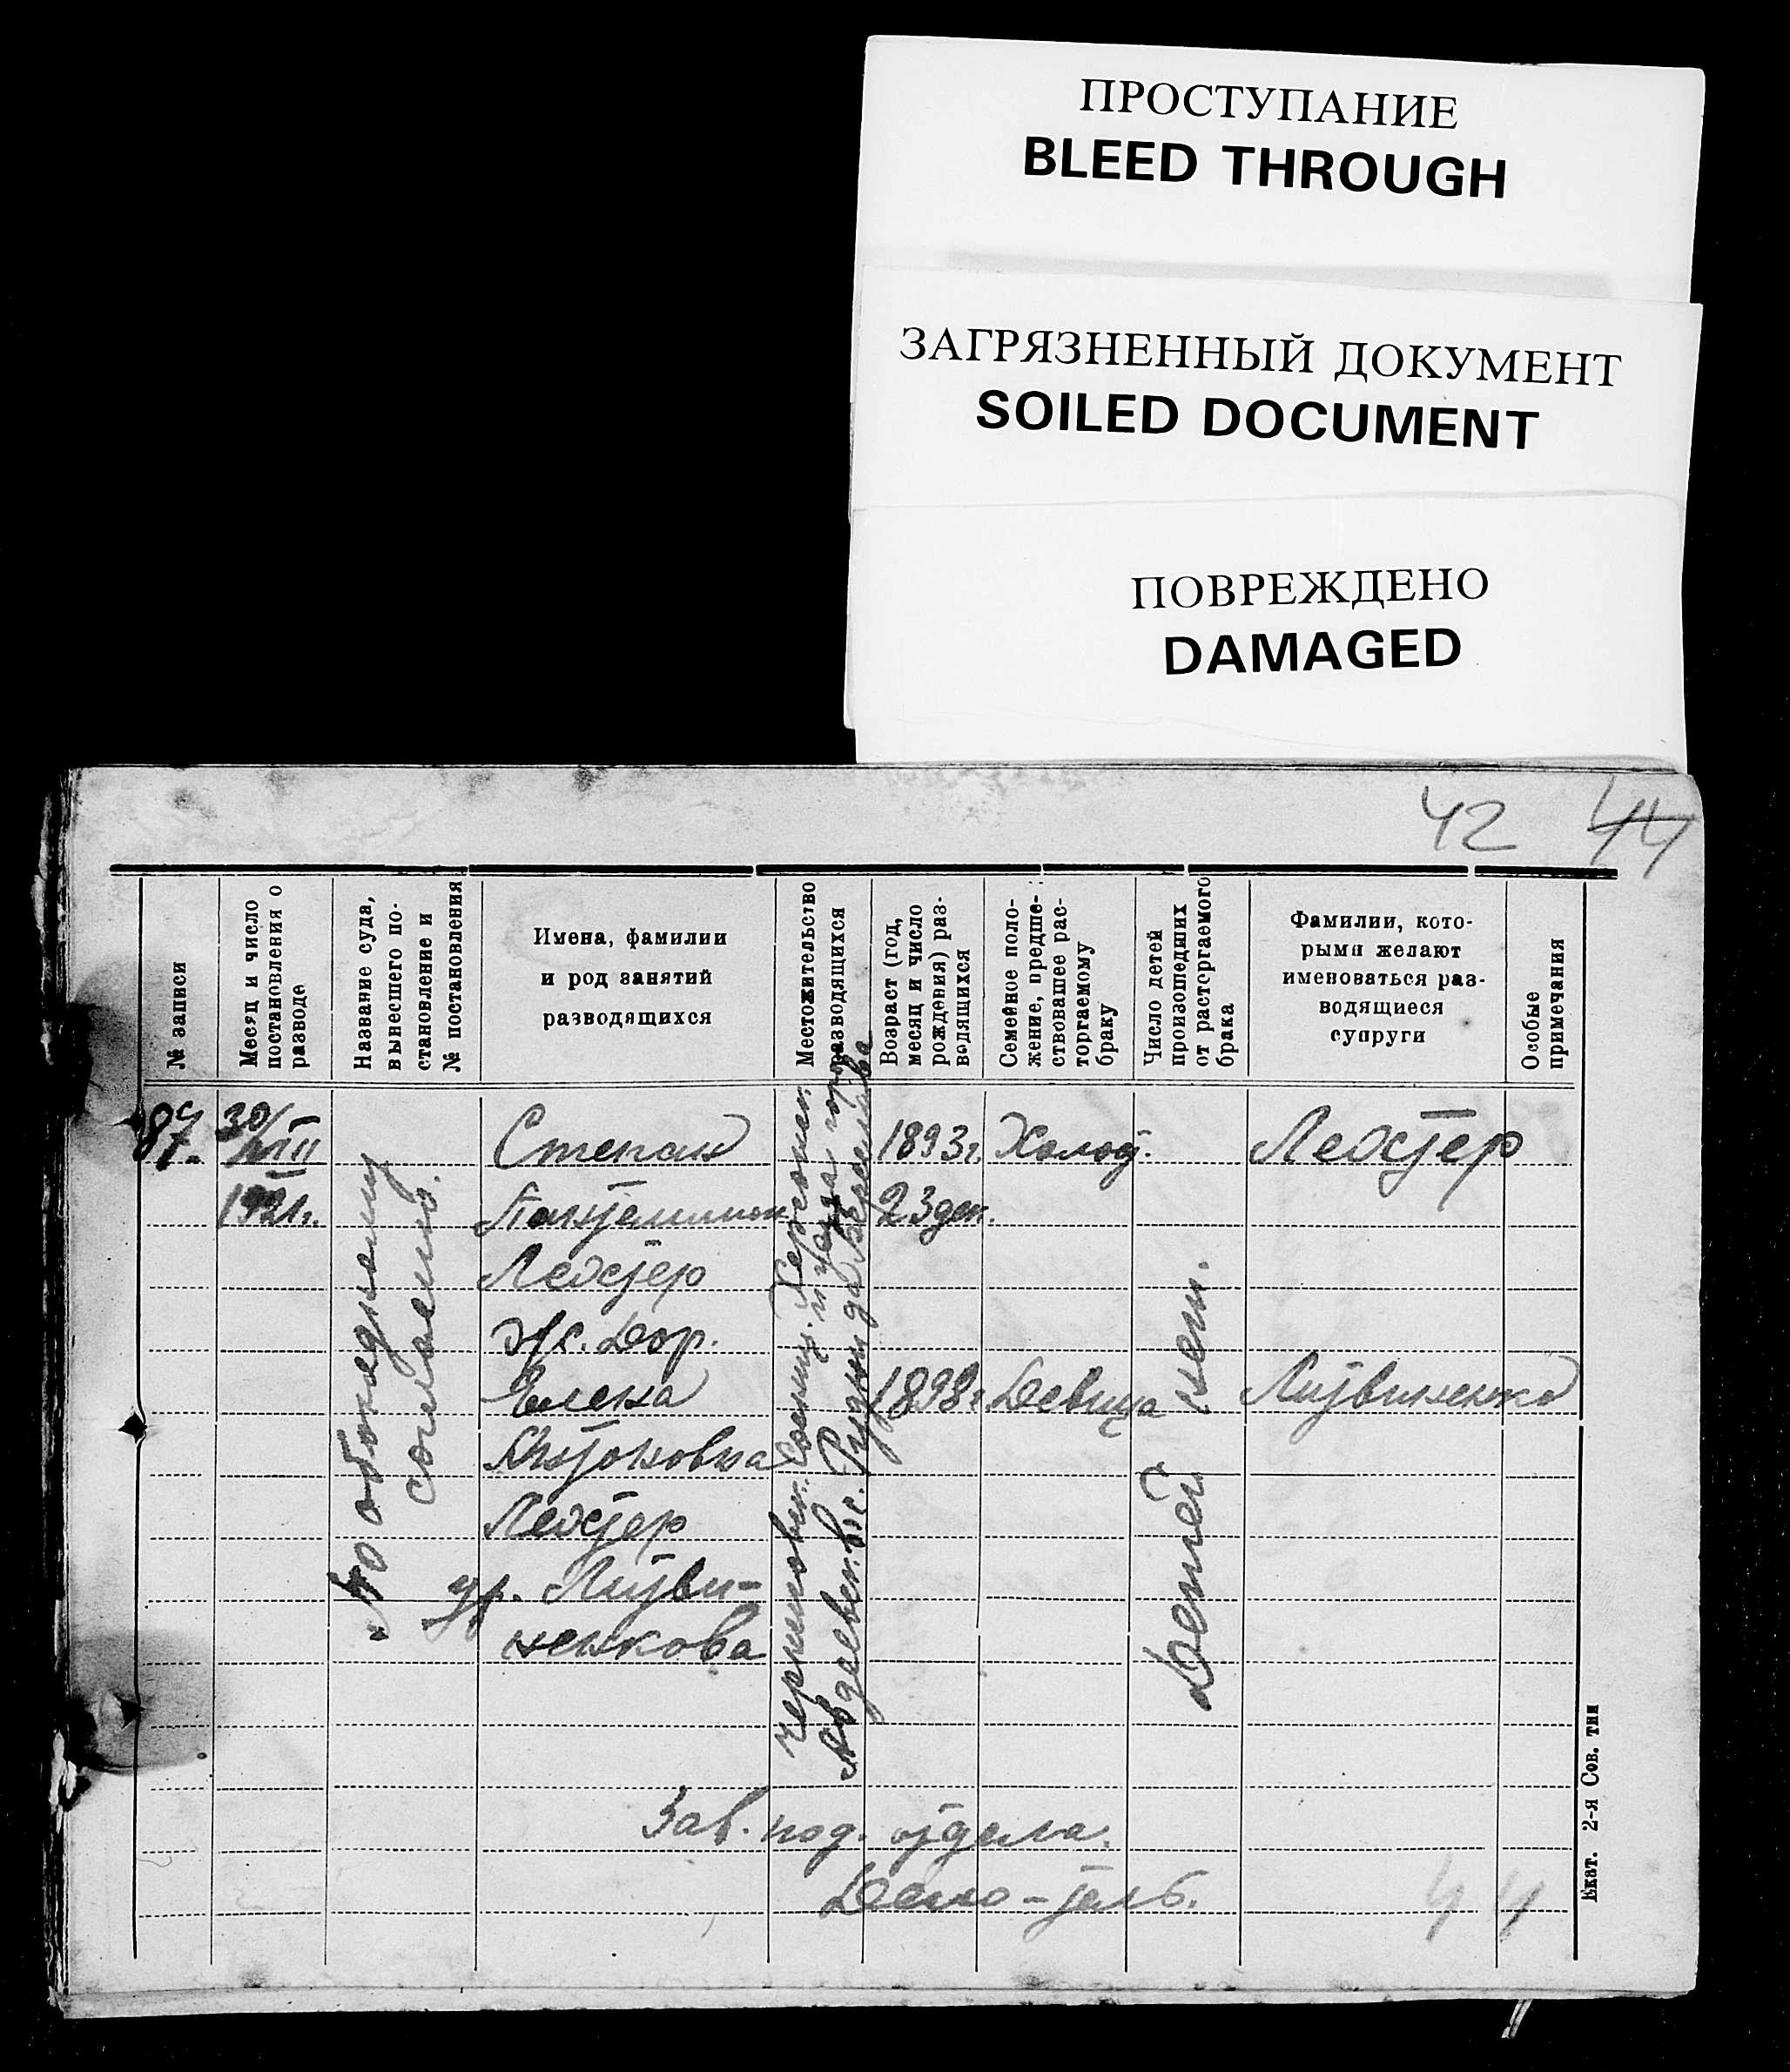 ПРОСТУПАНИЕ
BLEED THROUGH
ЗАГРЯЗНЕННЫЙ ДОКУМЕНТ
SOILED DOCUMENT
ПОВРЕЖДЕНО
DAMAGED
42 44
№ записи
Месяц и число
постановления о
разводе
Название суда,
вынесшего по-
становление и
№ постановления
Имена, фамилии
и род занятий
разводящихся
Местожительство
разводящихся
Возраст (год,
месяц и число
рождения) раз-
водящихся
Семейное поло-
жение, предше-
ствовавшее рас-
торгаемому
браку
Число детей
произошедших
от расторгаемого
брака
Фамилии, кото-
рыми желают
именоваться раз-
водящиеся
супруги
Особые
примечания
30/VIII
1921г.
По обоюдному
согласию.
Степан
Ледстер
Елена
Антоновна
Ледстер
ур. Литви-
ненкова
Черниговск. Херсонск.
1893г.
23 дек.
1898г
Холост.
Девица
Детей нет.
Ледстер
Литвиненко
Зав. под. отдела.
Дело-тель.
44
Екат. 2-я Сов. тип